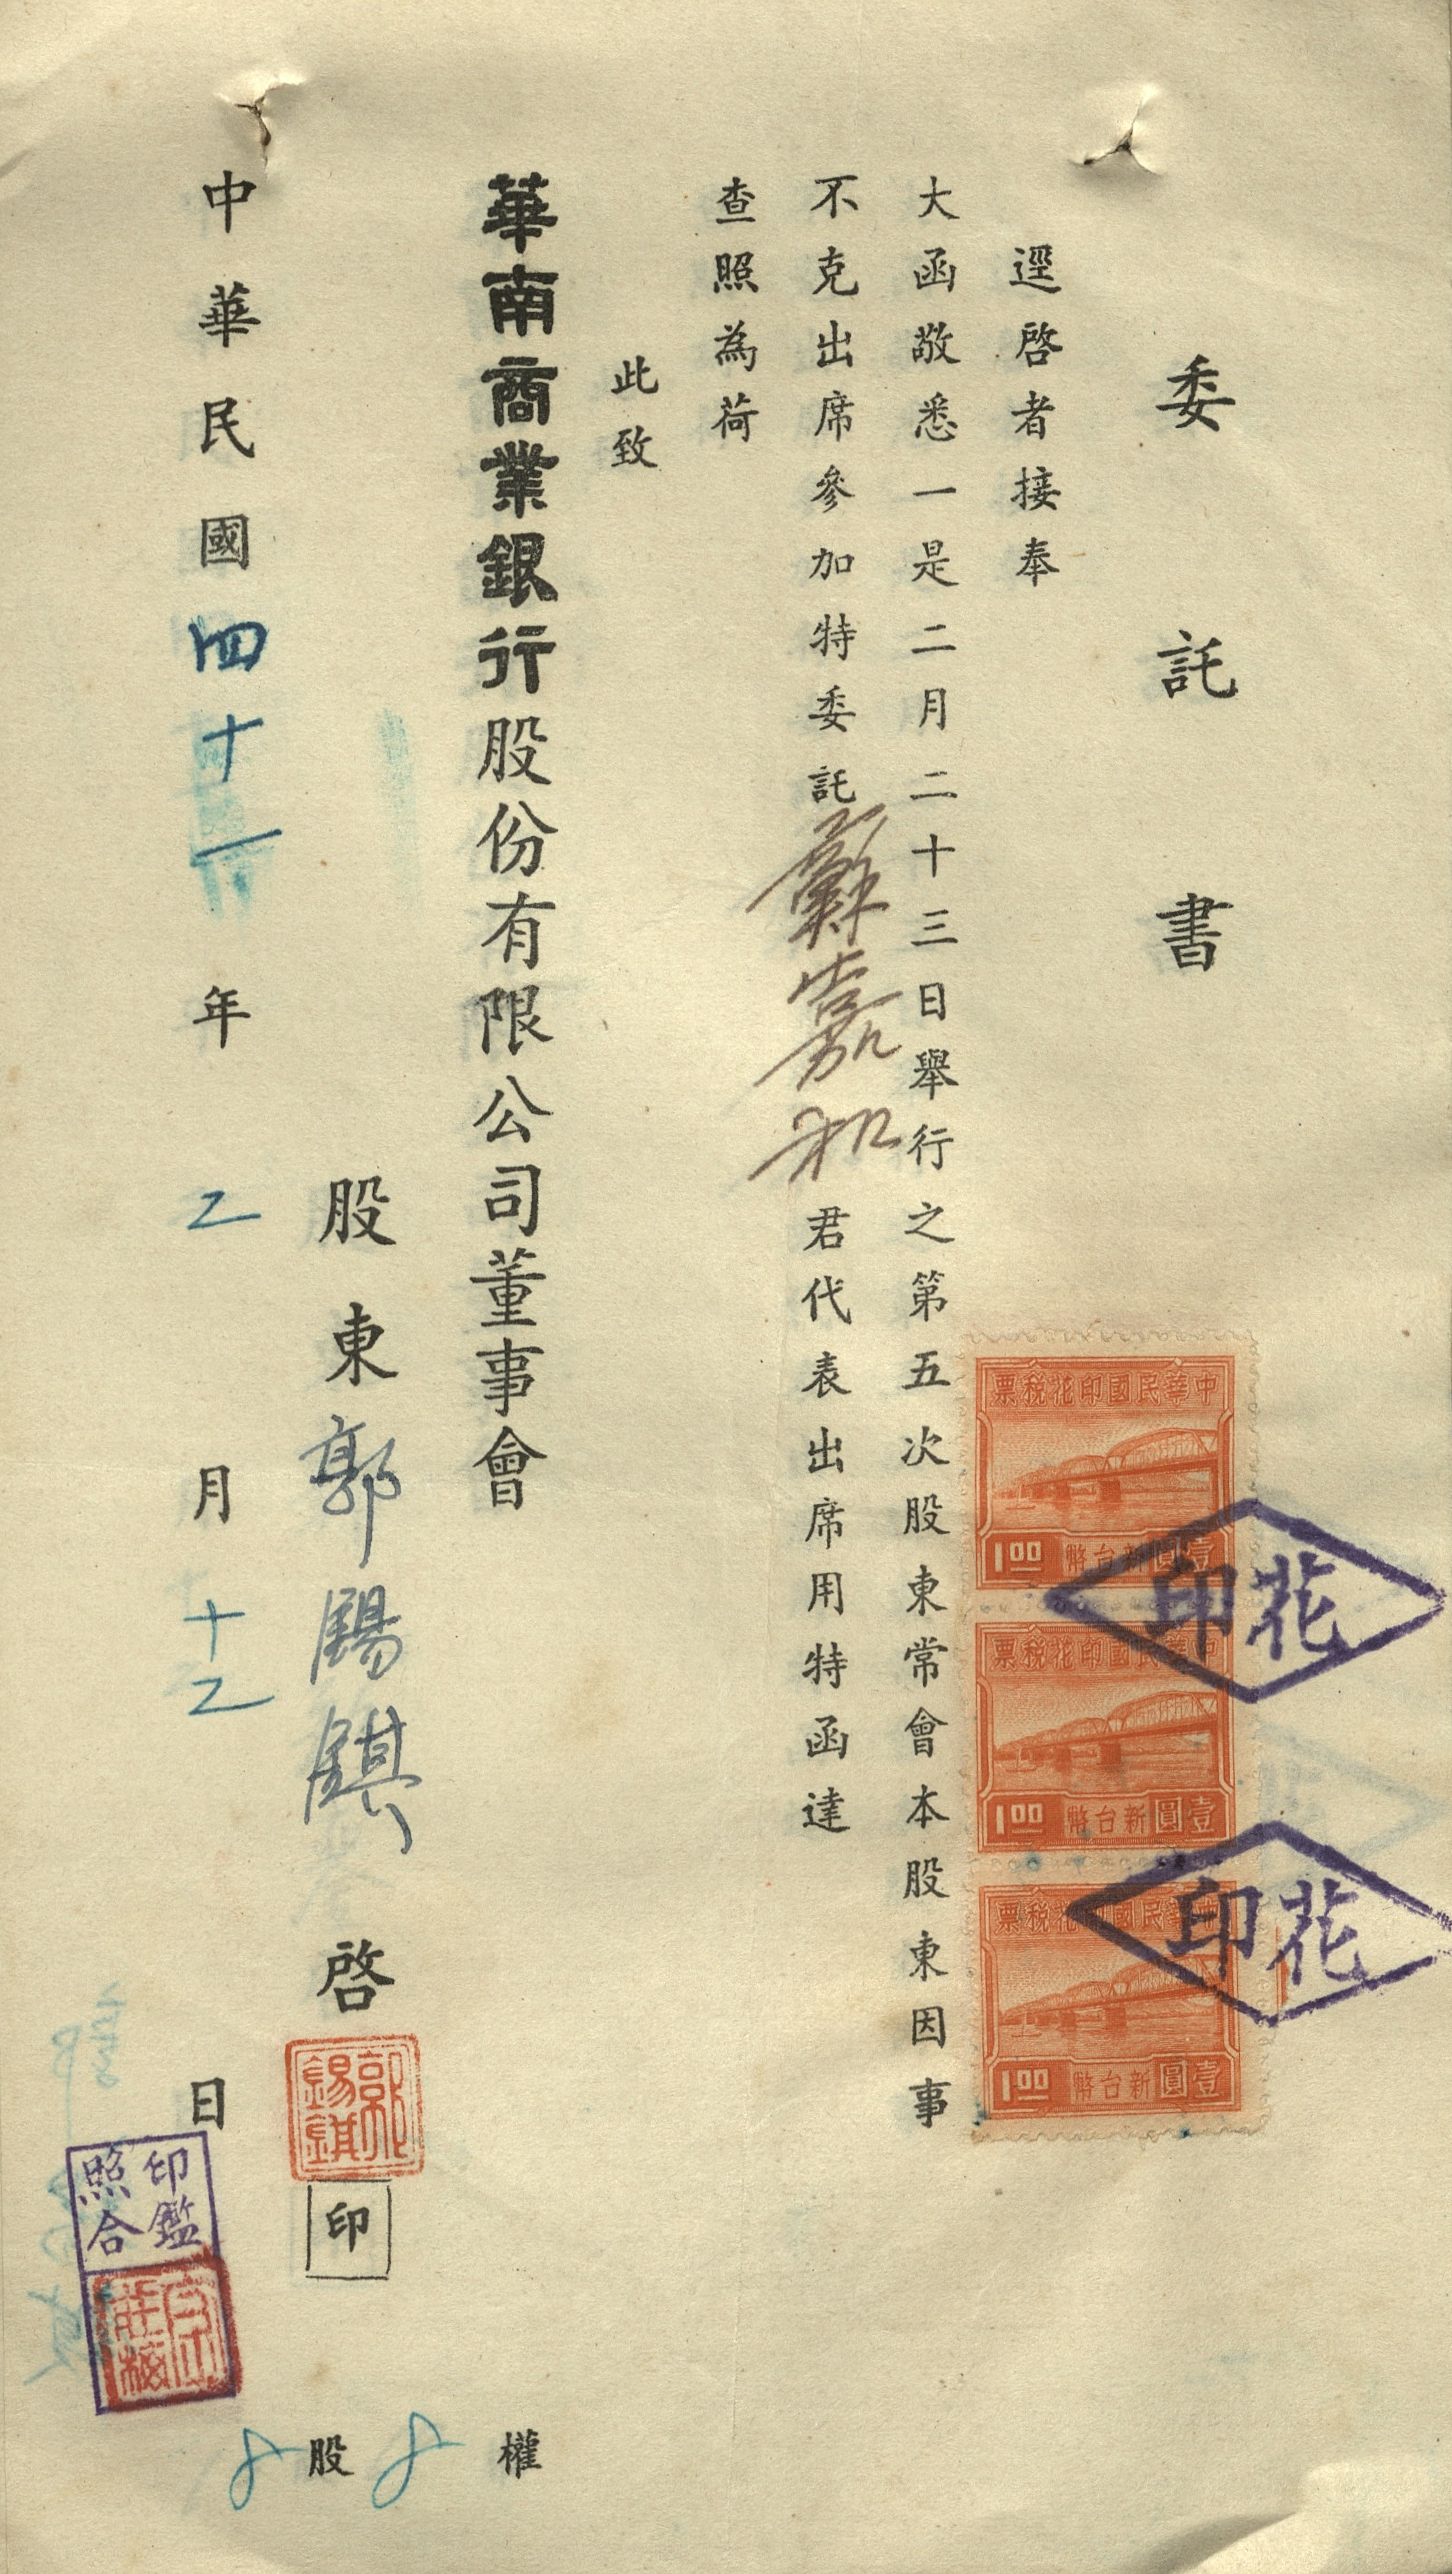 委託書
逕啓者接奉
大函敬悉一是二月二十三日舉行之第五次股東常會本股東因事
不克出席參加特委託蘇嘉和君代表出席用特函達
查照為荷
此致
華南商業銀行股份有限公司董事會
股東郭錫錤啓
郭錫錤
印
中華民國四十一年二月十二日
印鑑照合
權8股8
中華民國印花税票
壹圓新台幣
1.00
中華民國印花税票
壹圓新台幣
1.00
中華民國印花税票
壹圓新台幣
1.00
花印
花印